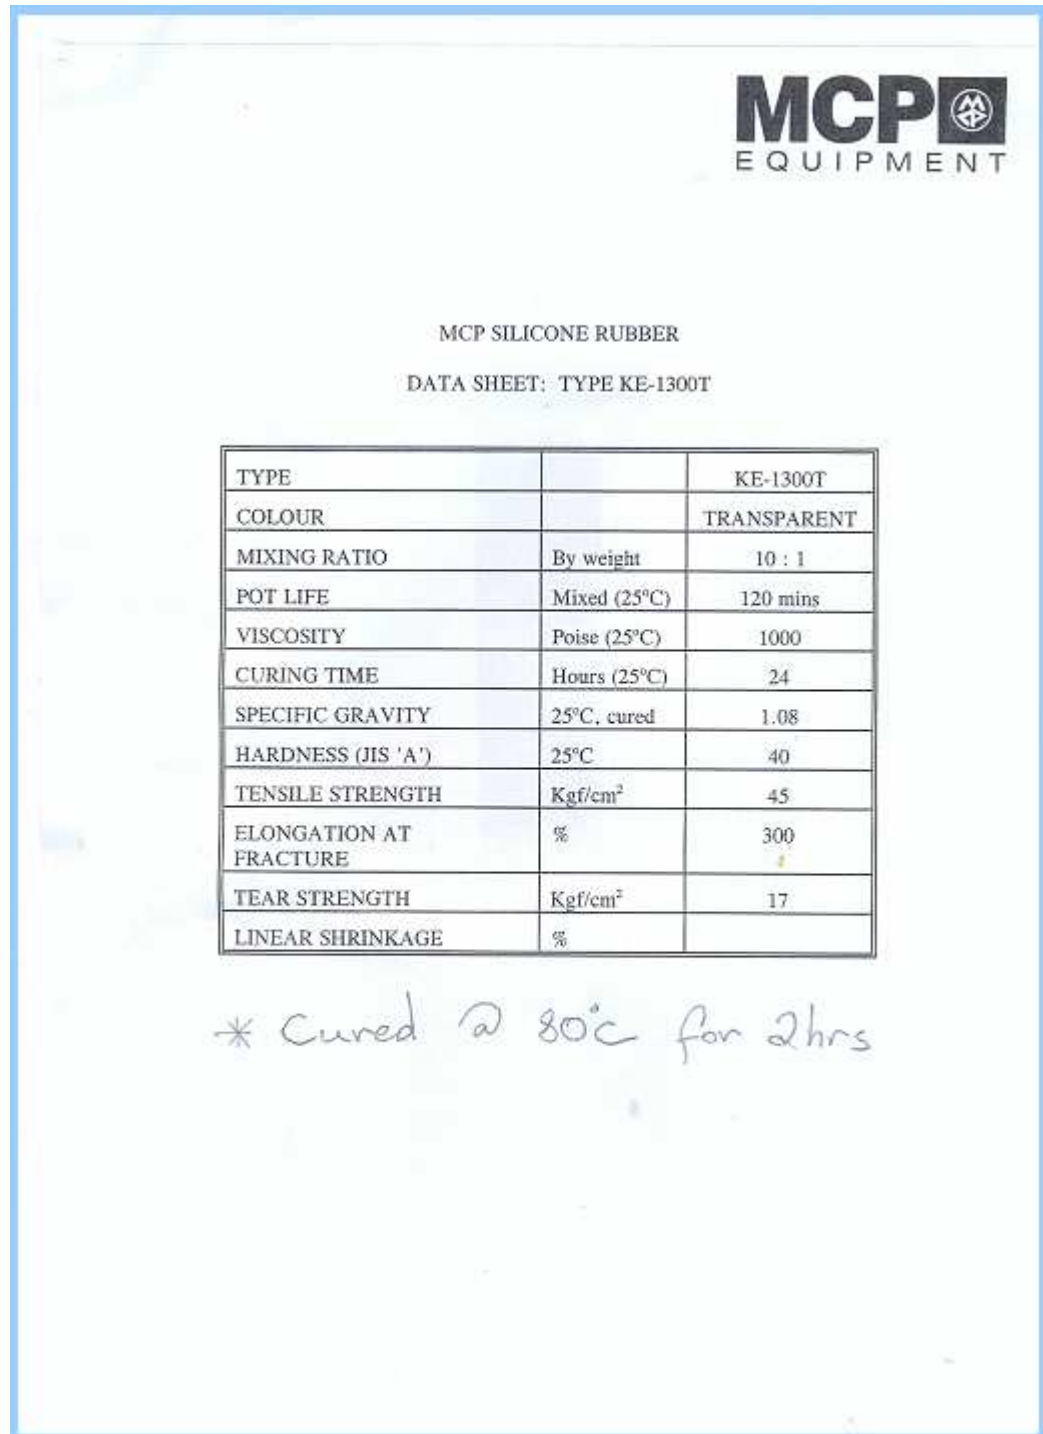 MCP
EQUIPMENT
MCP SILICONE RUBBER
DATA SHEET: TYPE KE-1300T
TYPE KE-1300T
COLOUR TRANSPARENT
MIXING RATIO By weight 10 : 1
POT LIFE Mixed (25°C) 120 mins
VISCOSITY Poise (25°C) 1000
CURING TIME Hours (25°C) 24
SPECIFIC GRAVITY 25°C, cured 1.08
HARDNESS (JIS 'A') 25°C 40
TENSILE STRENGTH Kgf/cm² 45
ELONGATION AT % 300
FRACTURE
TEAR STRENGTH Kgf/cm² 17
LINEAR SHRINKAGE %
* Cured @ 80°C for 2hrs